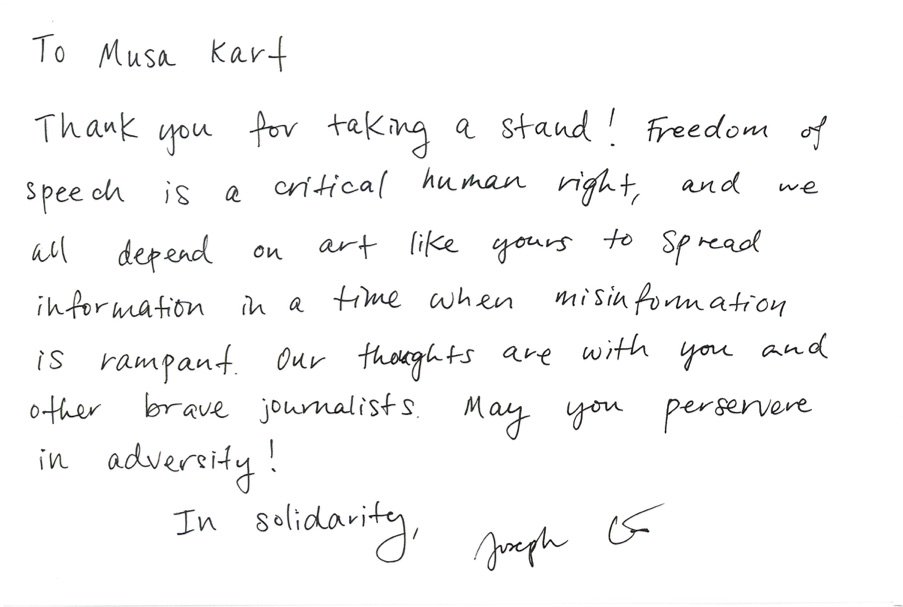 To Musa Kart
Thank you for taking a stand! Freedom of
speech is a critical human right, and we
all depend on art like yours to spread
information in a time when misinformation
is rampant. Our thoughts are with you and
other brave journalists. May you perservere
in adversity!
In solidarity, Joseph